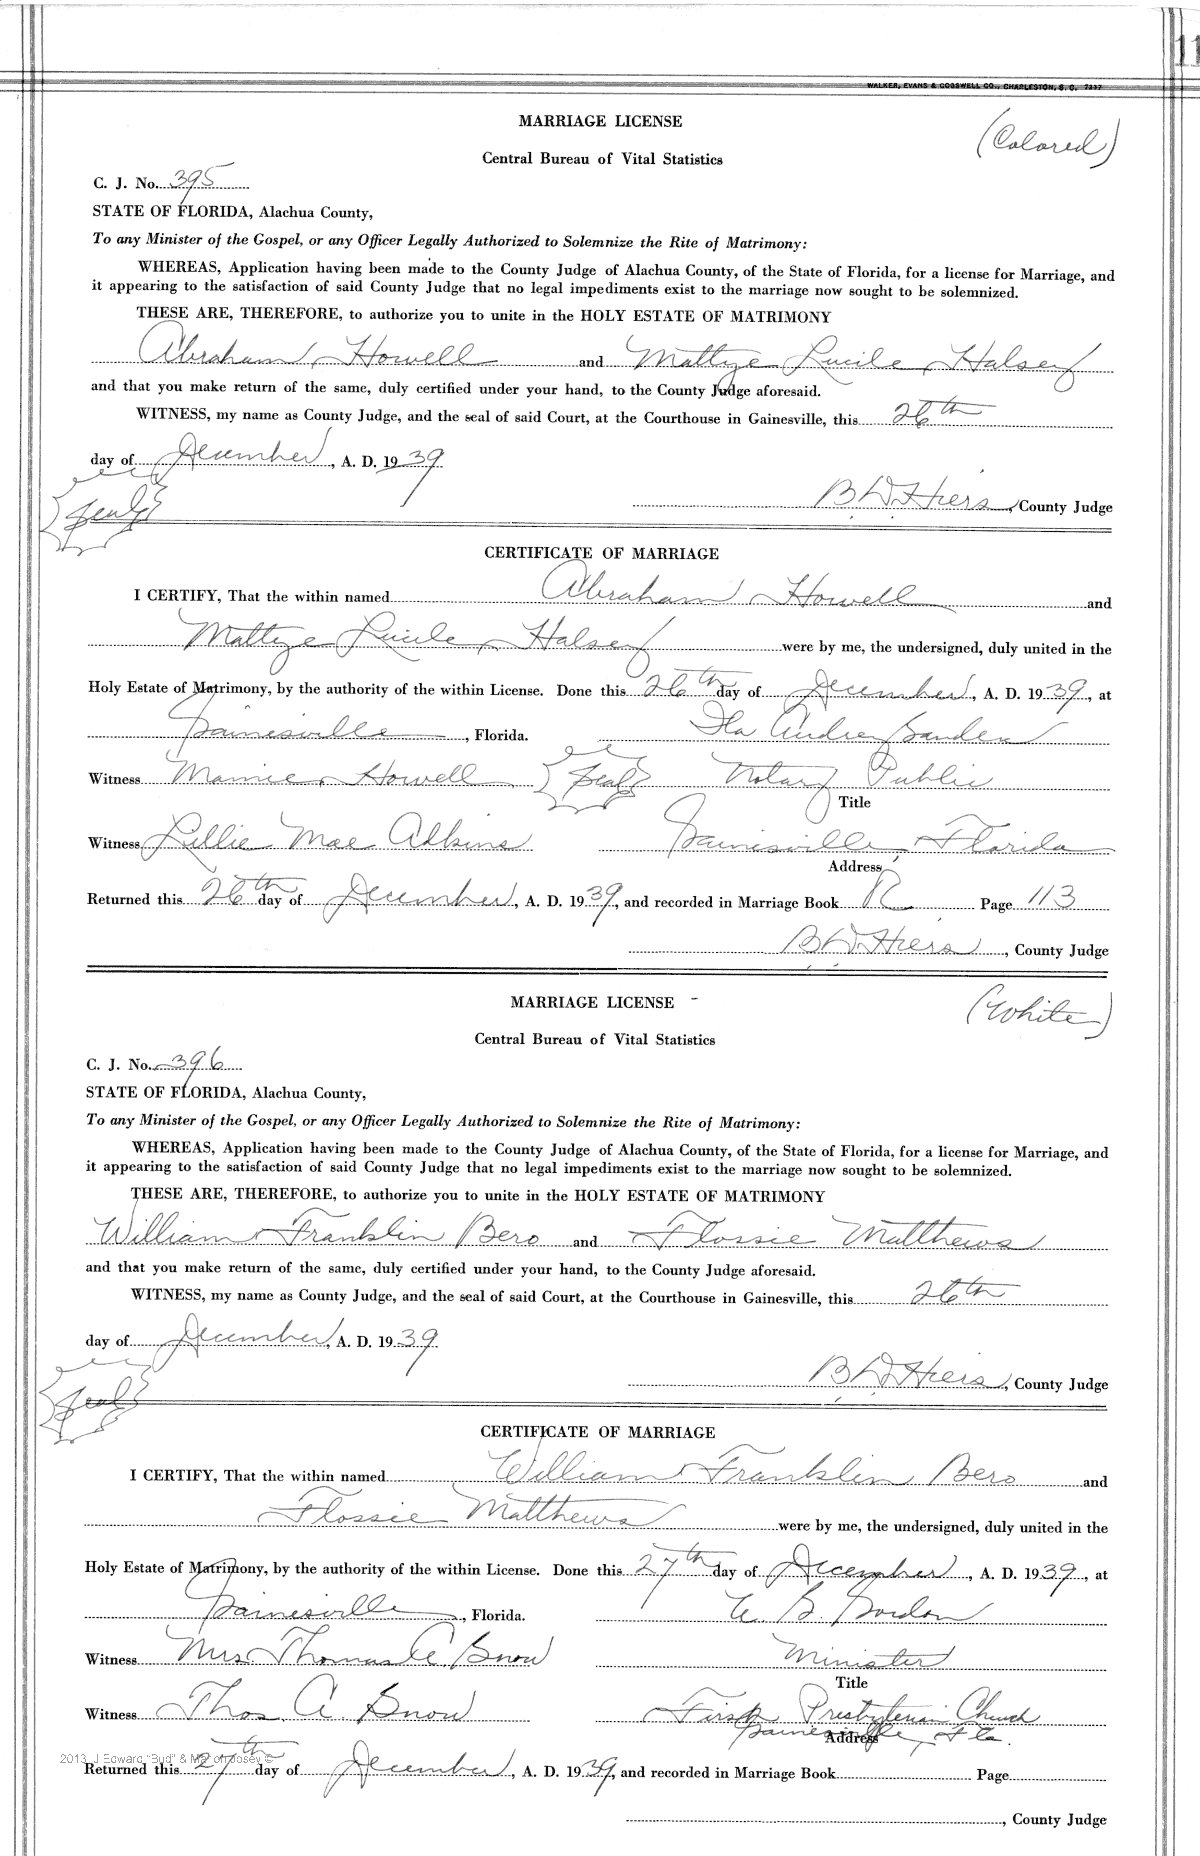 11
WALKER, EVANS & COGSWELL CO., CHARLESTON, S. C. 7337
MARRIAGE LICENSE
(Colored)
Central Bureau of Vital Statistics
C. J. No. 395
STATE OF FLORIDA, Alachua County,
To any Minister of the Gospel, or any Officer Legally Authorized to Solemnize the Rite of Matrimony:
WHEREAS, Application having been made to the County Judge of Alachua County, of the State of Florida, for a license for Marriage, and
it appearing to the satisfaction of said County Judge that no legal impediments exist to the marriage now sought to be solemnized.
THESE ARE, THEREFORE, to authorize you to unite in the HOLY ESTATE OF MATRIMONY
Abraham Howell and Mattye Lucile Halsey
and that you make return of the same, duly certified under your hand, to the County Judge aforesaid.
WITNESS, my name as County Judge, and the seal of said Court, at the Courthouse in Gainesville, this 26th
day of December, A. D. 1939
Seal
B D Hiers, County Judge
CERTIFICATE OF MARRIAGE
I CERTIFY, That the within named Abraham Howell and
Mattye Lucile Halsey were by me, the undersigned, duly united in the
Holy Estate of Matrimony, by the authority of the within License. Done this 26th day of December, A. D. 1939, at
Gainesville, Florida. Ila Audrey
Witness Mamie Howell Seal Notary Public
Title
Witness Lillie Mae Adkins Gainesville, Florida
Address
Returned this 26th day of December, A. D. 1939, and recorded in Marriage Book R Page 113
B D Hiers, County Judge
MARRIAGE LICENSE -
(White)
Central Bureau of Vital Statistics
C. J. No. 396
STATE OF FLORIDA, Alachua County,
To any Minister of the Gospel, or any Officer Legally Authorized to Solemnize the Rite of Matrimony:
WHEREAS, Application having been made to the County Judge of Alachua County, of the State of Florida, for a license for Marriage, and
it appearing to the satisfaction of said County Judge that no legal impediments exist to the marriage now sought to be solemnized.
THESE ARE, THEREFORE, to authorize you to unite in the HOLY ESTATE OF MATRIMONY
William Franklin Bero and Flossie Matthews
and that you make return of the same, duly certified under your hand, to the County Judge aforesaid.
WITNESS, my name as County Judge, and the seal of said Court, at the Courthouse in Gainesville, this 26th
day of December, A. D. 1939
Seal
B D Hiers, County Judge
CERTIFICATE OF MARRIAGE
I CERTIFY, That the within named William Franklin Bero and
Flossie Matthews were by me, the undersigned, duly united in the
Holy Estate of Matrimony, by the authority of the within License. Done this 27th day of December, A. D. 1939, at
Gainesville, Florida. B. Gordon
Witness Mrs. Thomas A. Snow Minister
Title
Witness Thos. A. Snow First Presbyterian Church
Gainesville, Fla.
Address
2013 J Edward "Bud" &
Returned this 27th day of December, A. D. 1939, and recorded in Marriage Book Page
, County Judge